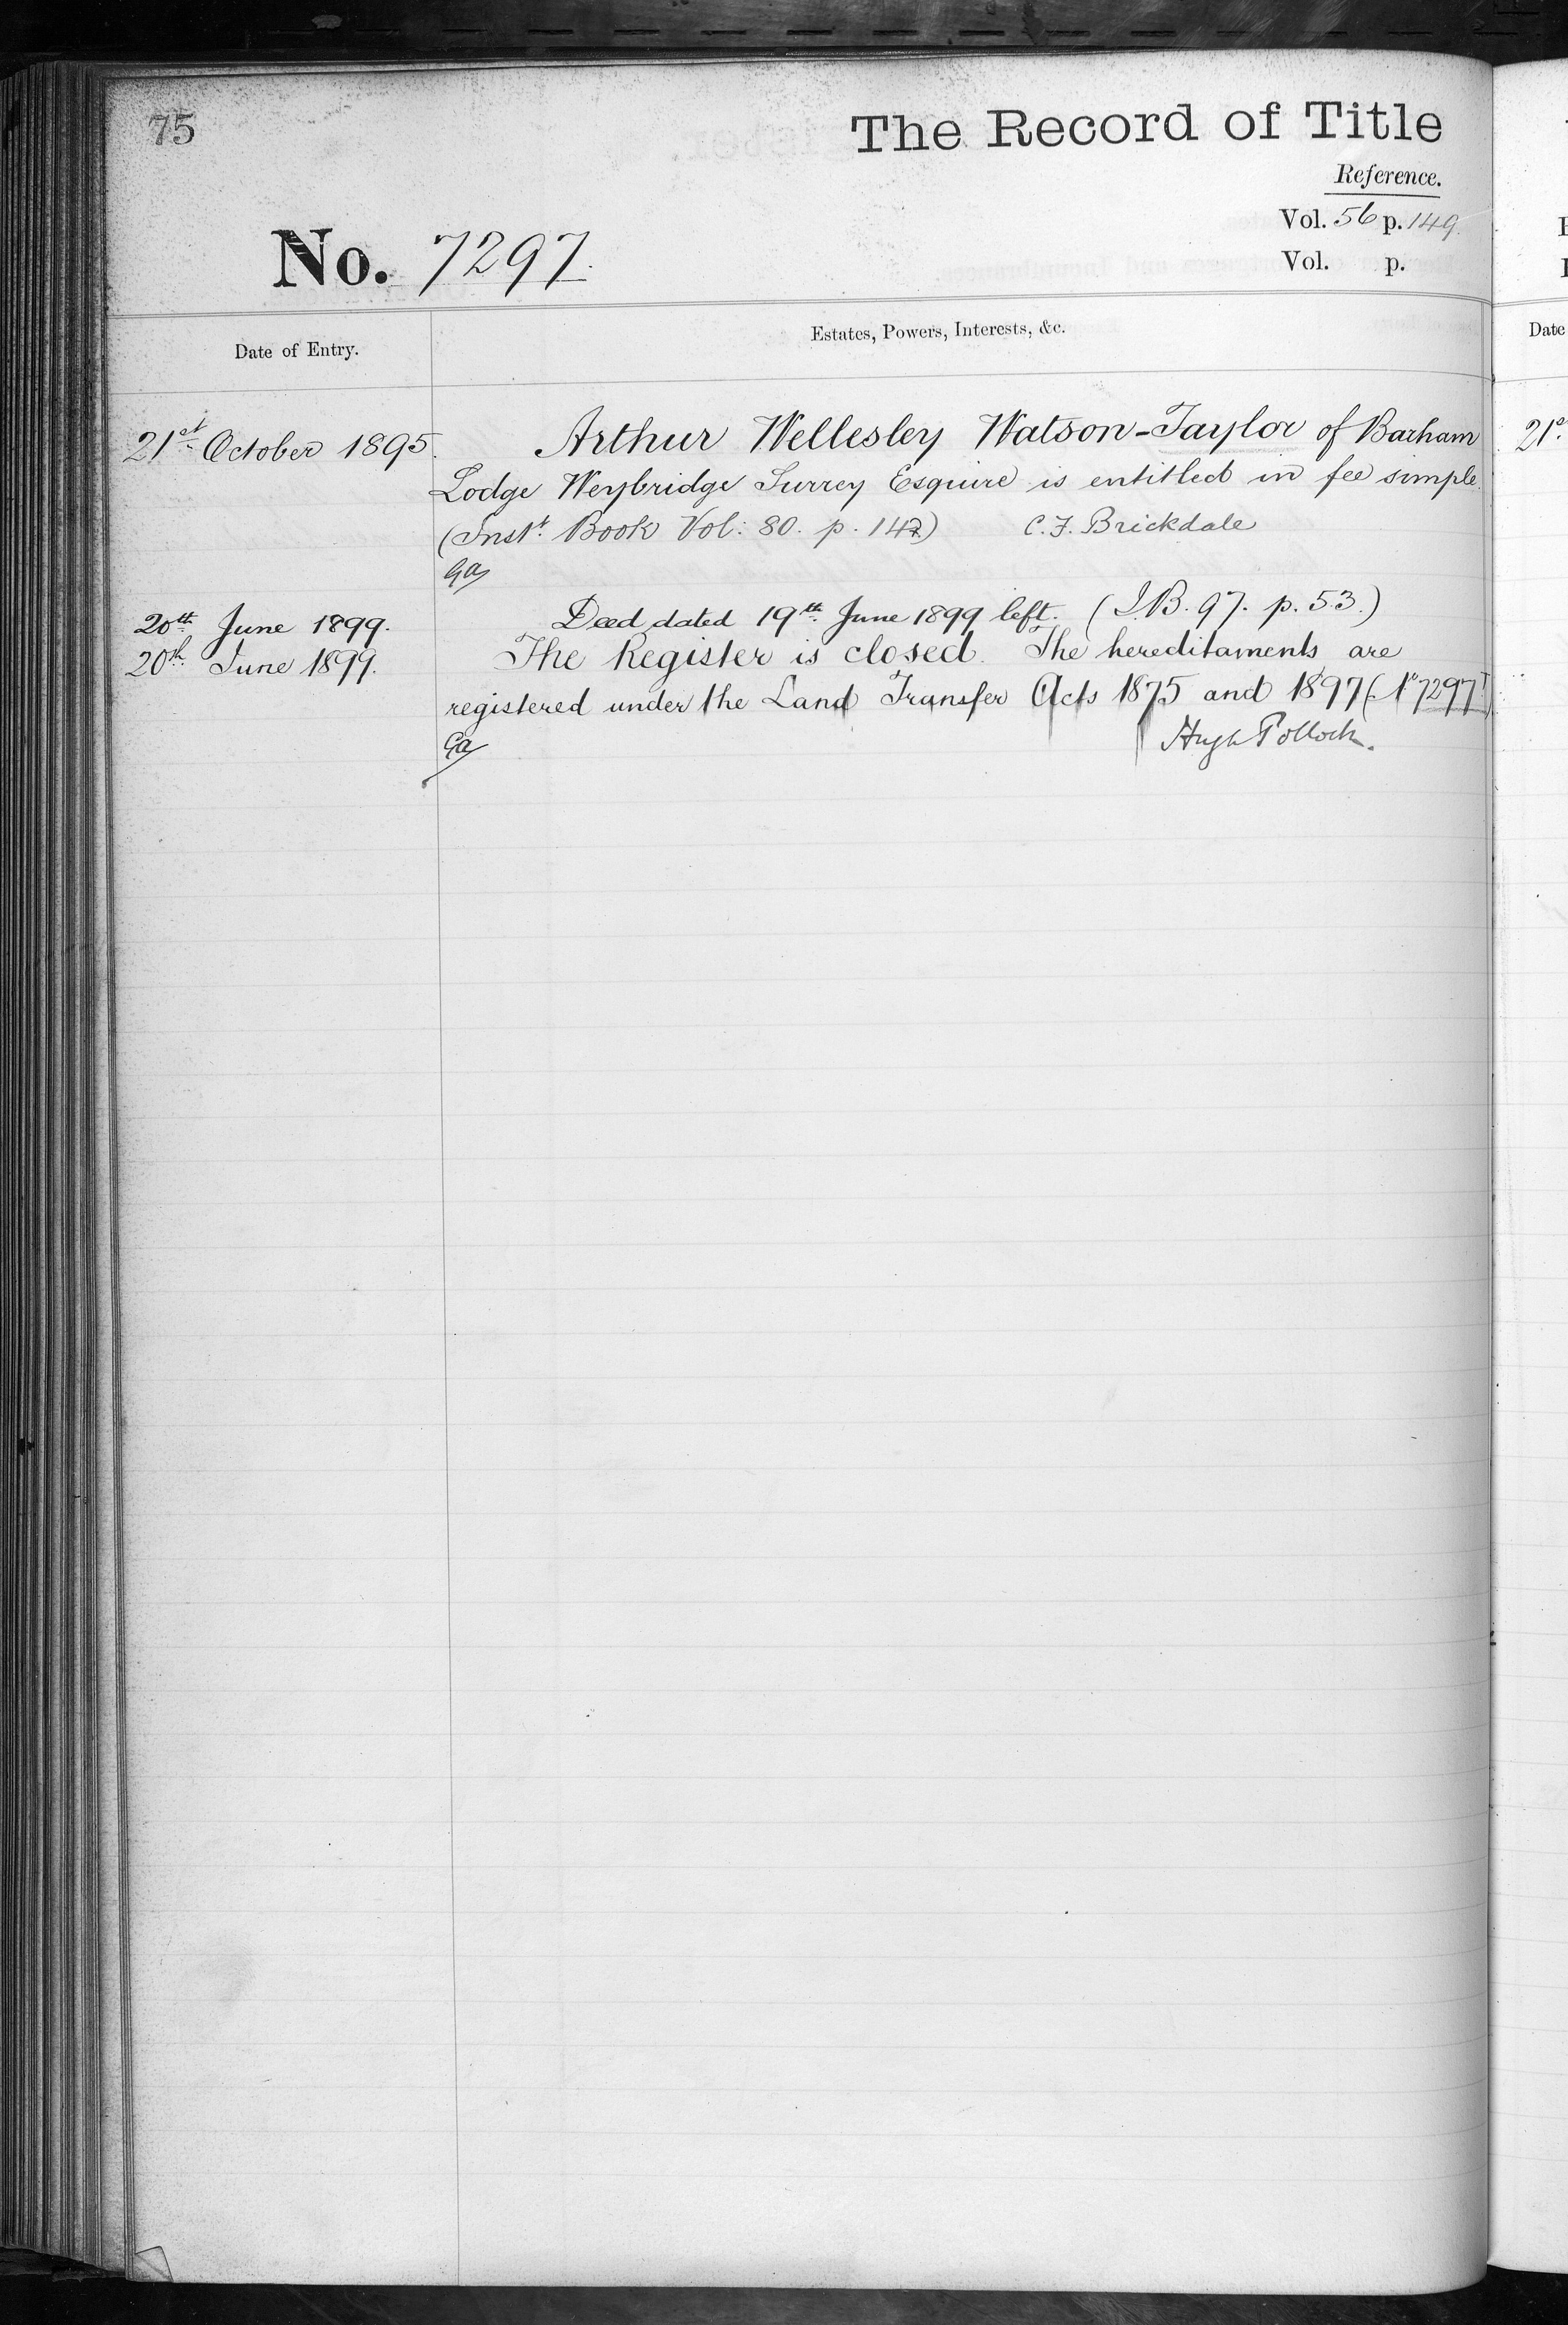 75
The Record of Title
Reference.
Vol. 56 p. 149
Vol. p.
No. 7297.
Date of Entry.
Estates, Powers, Interests, &c.
21st October 1895. Arthur Wellesley Watson-Taylor of Barham
Lodge Weybridge Surrey Esquire is entitled in fee simple.
(Inst. Book Vol: 80. p. 142) C. F. Brickdale
Ga
20th June 1899. Deed dated 19th June 1899 left. (I.B. 97. p. 53.)
20th June 1899. The Register is closed. The hereditaments are
registered under the Land Transfer Acts 1875 and 1897 (No 7297)
Ga Hugh Pollock.
Date
21st